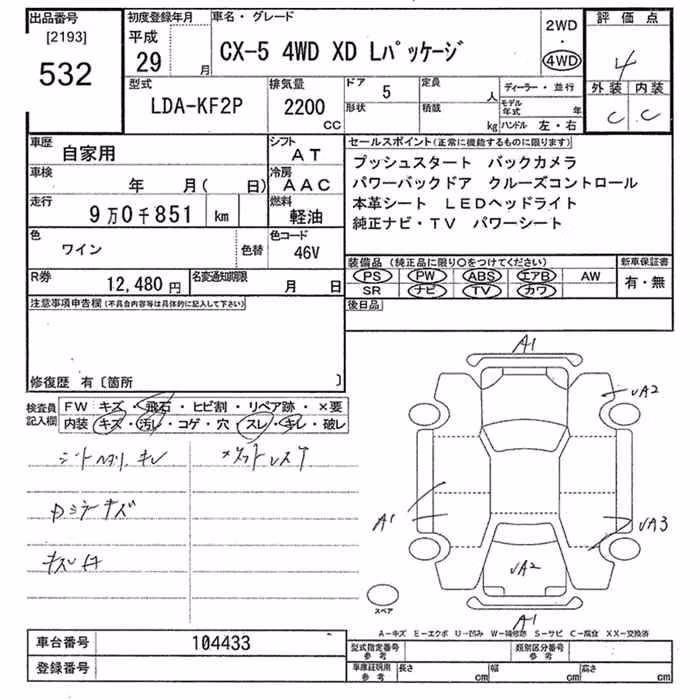 出品番号
[2193]
532
初度登録年月
平成
29 月
車名・グレード
CX-5 4WD XD Lパッケージ
2WD
・
4WD
評価点
4
外装 内装
C C
型式
LDA-KF2P
排気量
2200
CC
ドア 5
定員 人
形状
積載 kg
ディーラー・並行
モデル年式 年
ハンドル 左・右
車歴 自家用
シフト AT
車検 年 月( 日)
冷房 AAC
走行 9万0千851 km
燃料 軽油
色 ワイン
色替
色コード 46V
R券 12,480 円
名変通知期限 月 日
セールスポイント(正常に機能するものに限ります)
プッシュスタート バックカメラ
パワーバックドア クルーズコントロール
本革シート LEDヘッドライト
純正ナビ・TV パワーシート
装備品 (純正品に限り〇をつけてください)
新車保証書
PS PW ABS エアB AW
有・無
SR ナビ TV カワ
後日品
注意事項申告欄(不具合内容等は具体的に記入して下さい)
修復歴 有〔箇所 〕
検査員記入欄
FW キズ・飛石・ヒビ割・リペア跡・×要
内装 キズ・汚レ・コゲ・穴・スレ・キレ・破レ
A1
A2
A1
A3
A2
A1
スペア
A-キズ E-エクボ U-凹み W-補修跡 S-サビ C-腐食 XX-交換済
車台番号 104433
登録番号
型式指定番号 参考
類別区分番号 参考
車庫証明用 参考
長さ cm
幅 cm
高さ cm